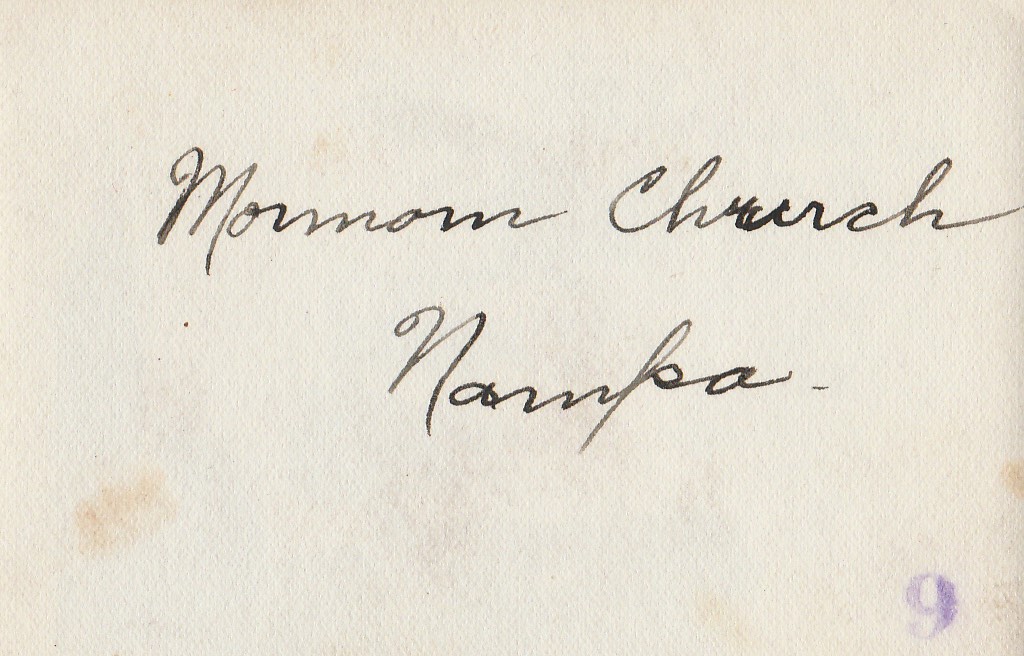 Mormom Church
Nampa -
9